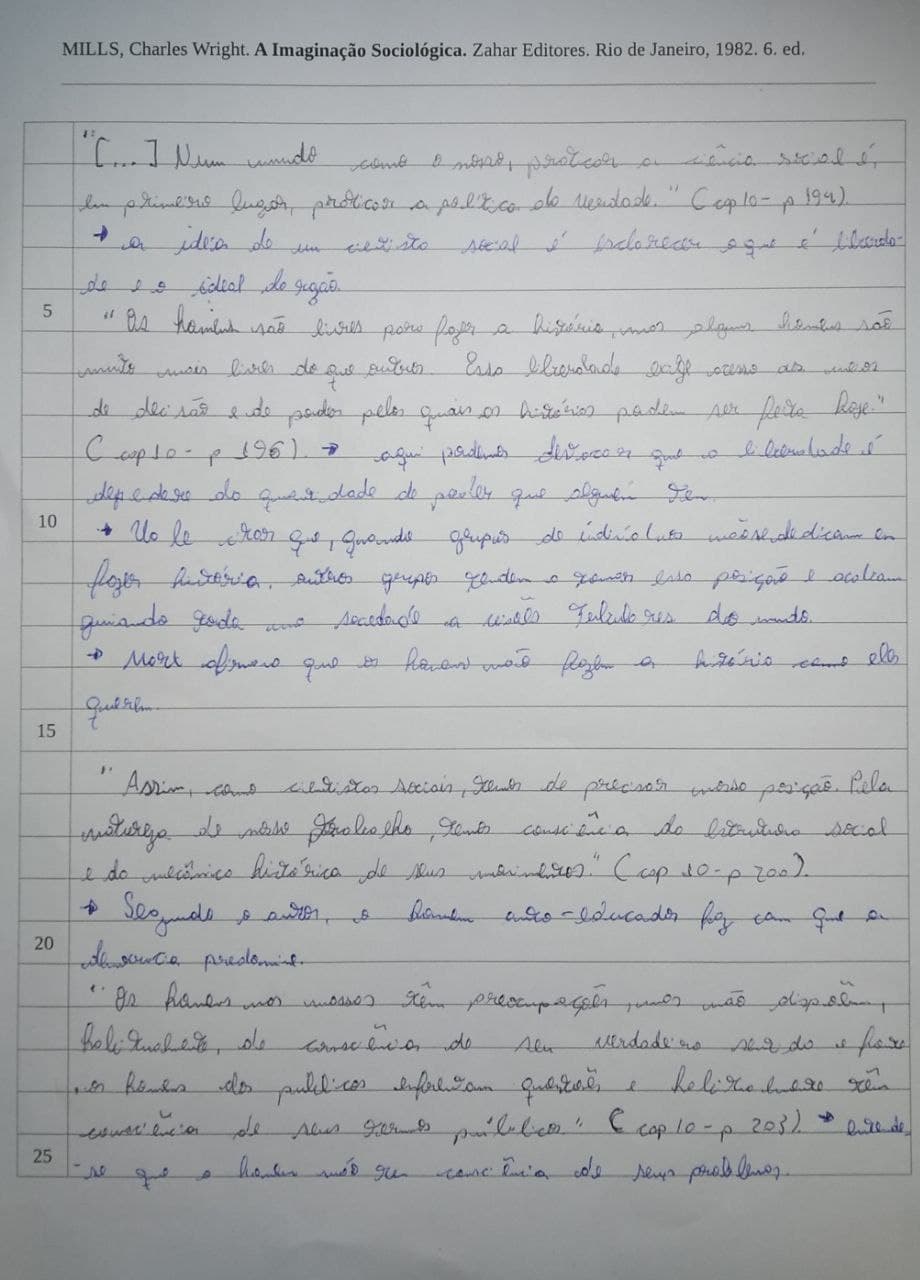 MILLS, Charles Wright. A Imaginação Sociológica. Zahar Editores. Rio de Janeiro, 1982. 6. ed.
"[...] Num mundo como o nosso, praticar a ciência social é,
em primeiro lugar, praticar a política da verdade." (cap 10 - p 194).
→ a ideia de um cientista social é esclarecer o que é liberda-
de e o ideal de
5 "Os homens são livres para fazer a história, mas alguns homens são
muito mais livres do que outros. Essa liberdade exige acesso aos meios
de decisão e de poder pelos quais os histórios podem ser feita hoje."
(cap 10 - p 196). → aqui podemos destacar que a liberdade é
da quantidade de poder que alguém tem.
10 → Vale citar que, quando grupos de indivíduos não se dedicam em
fazer história, outros grupos tendem a tomar essa posição e acabam
guiando toda uma sociedade a visões do mundo.
→ Marx afirmava que os homens não fazem a história como eles
querem.
15
"Assim, como cientistas sociais, temos de precisar nossa posição. Pela
natureza de nosso trabalho, temos consciência da estrutura social
e da mecânica histórica de seus movimentos." (cap 10 - p 200).
→ Segundo o autor, o homem auto-educador faz com que a
20 democracia predomine.
"Os homens nas massas têm preocupações, mas não dispõem,
habitualmente, de consciência de seu verdadeiro sentido e fonte
, os homens dos públicos enfrentam questões e habitualmente têm
consciência de seus termos públicos" (cap 10 - p 203) → entende
25 -se que o homem não tem consciência de seus problemas.